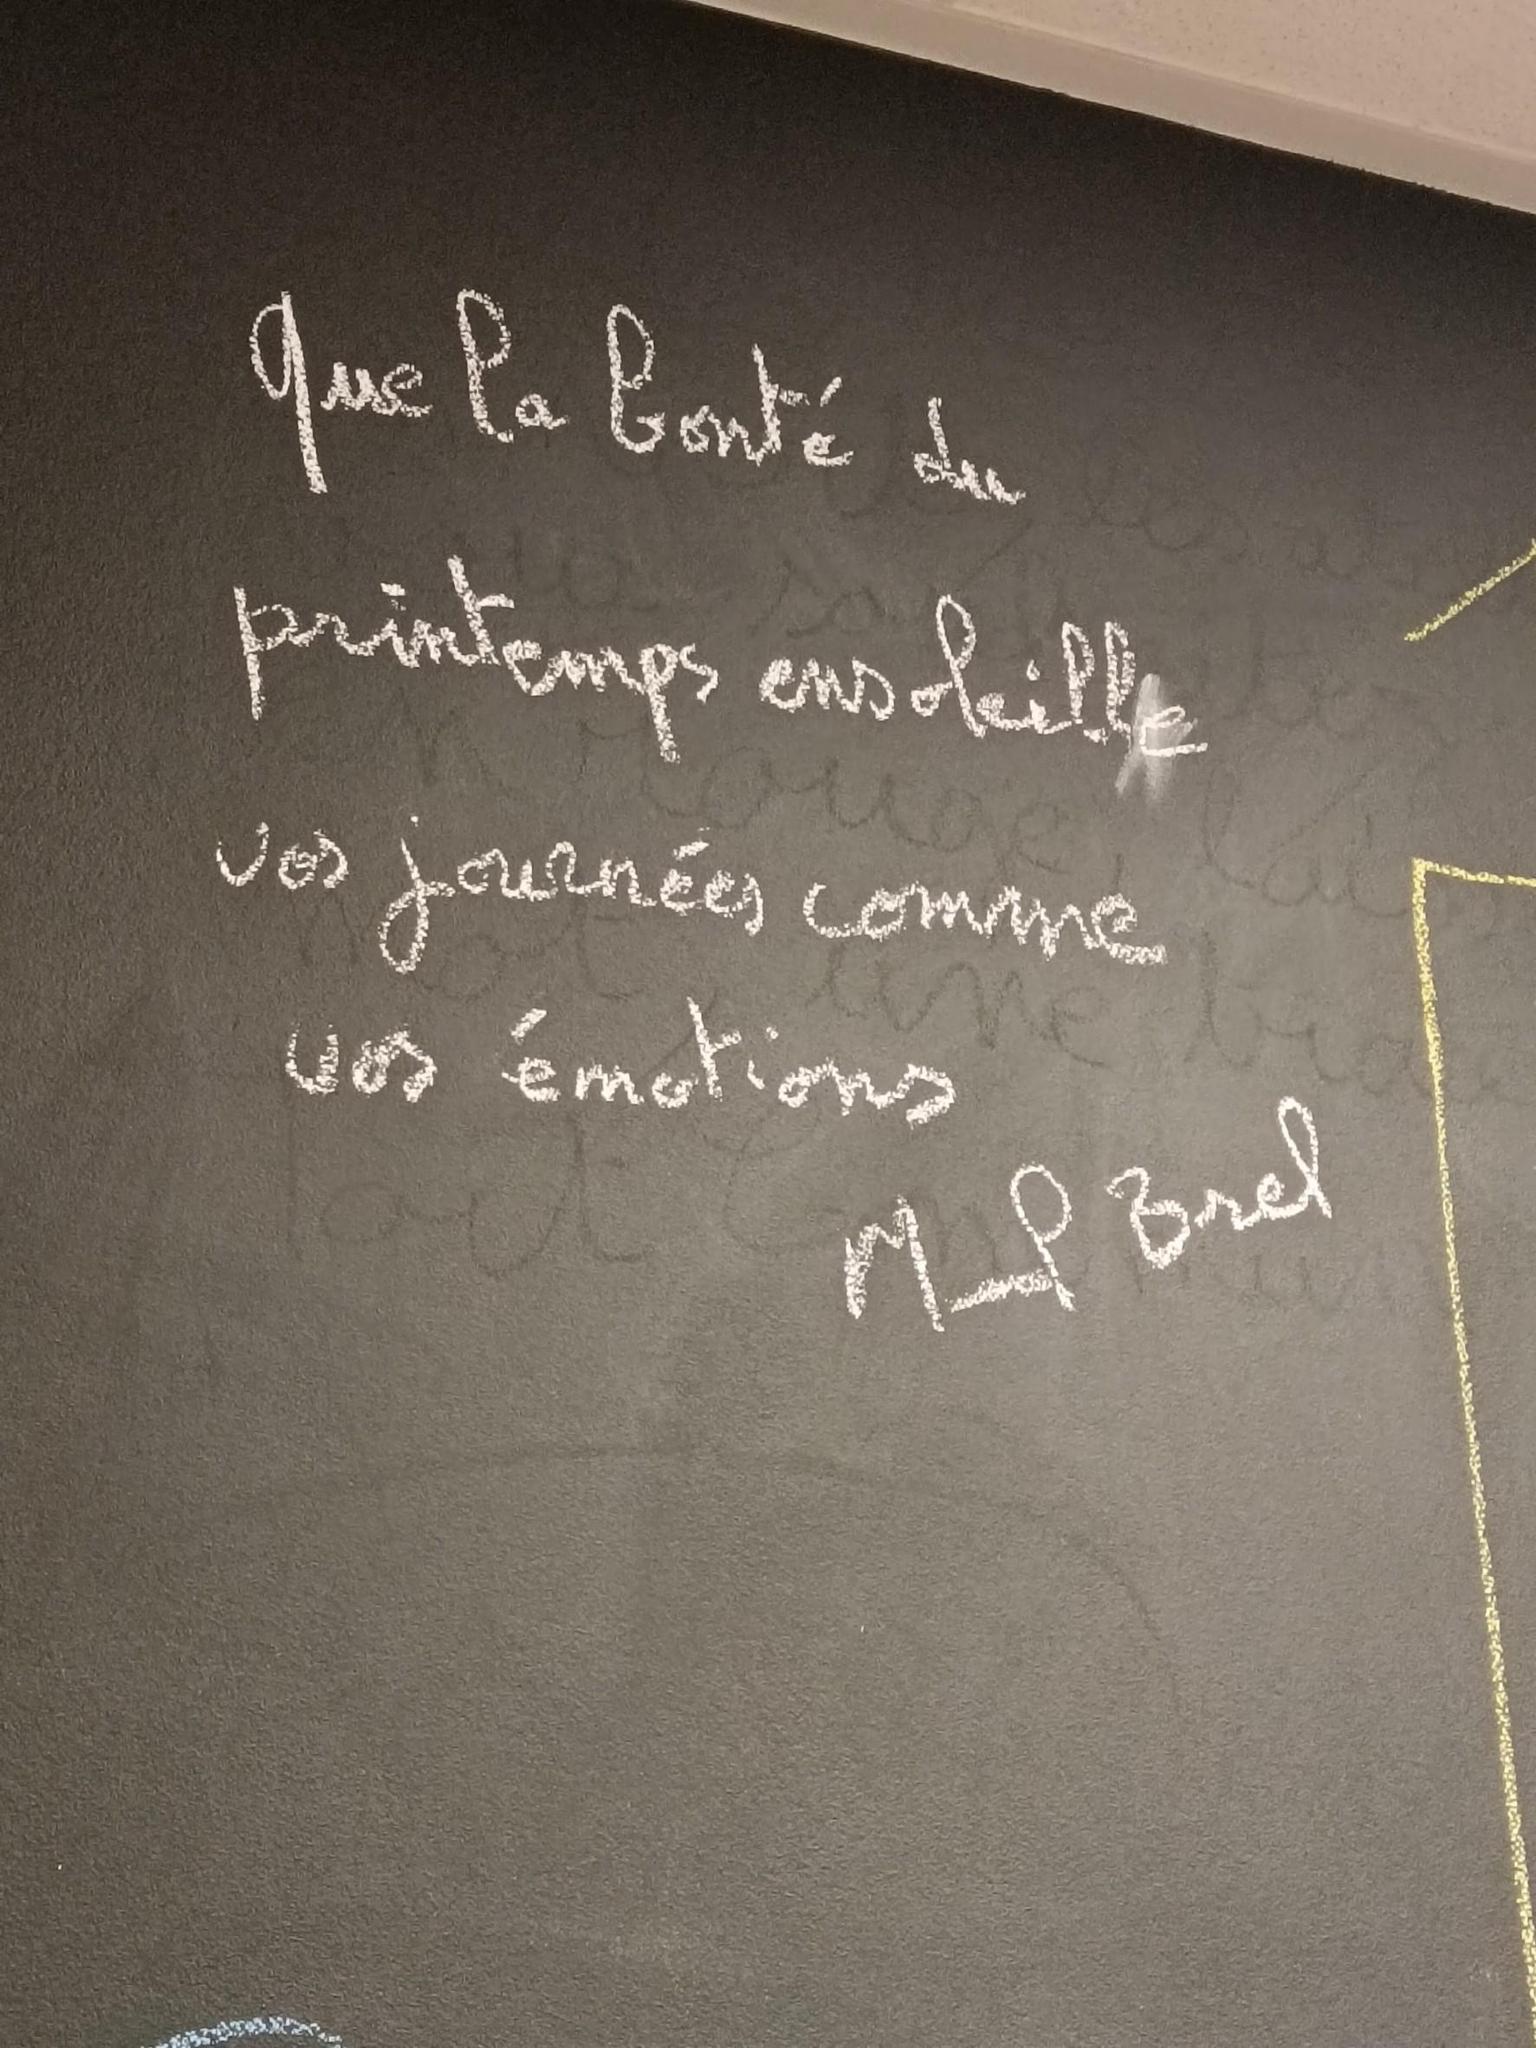 Que la bonté du
printemps ensoleille
vos journées comme
vos émotions
M_P Brel